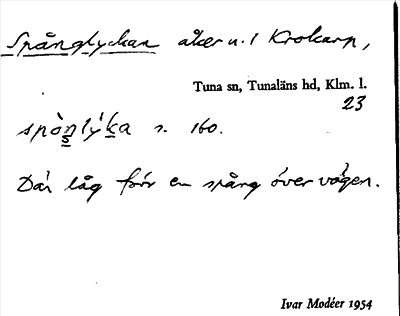 Spånglyckan åker n. 1 Krokarp,
Tuna sn, Tunaläns hd, Klm. l.
23
spòŋlýka s. 160.
Där låg förr en spång över vägen.
Ivar Modéer 1954